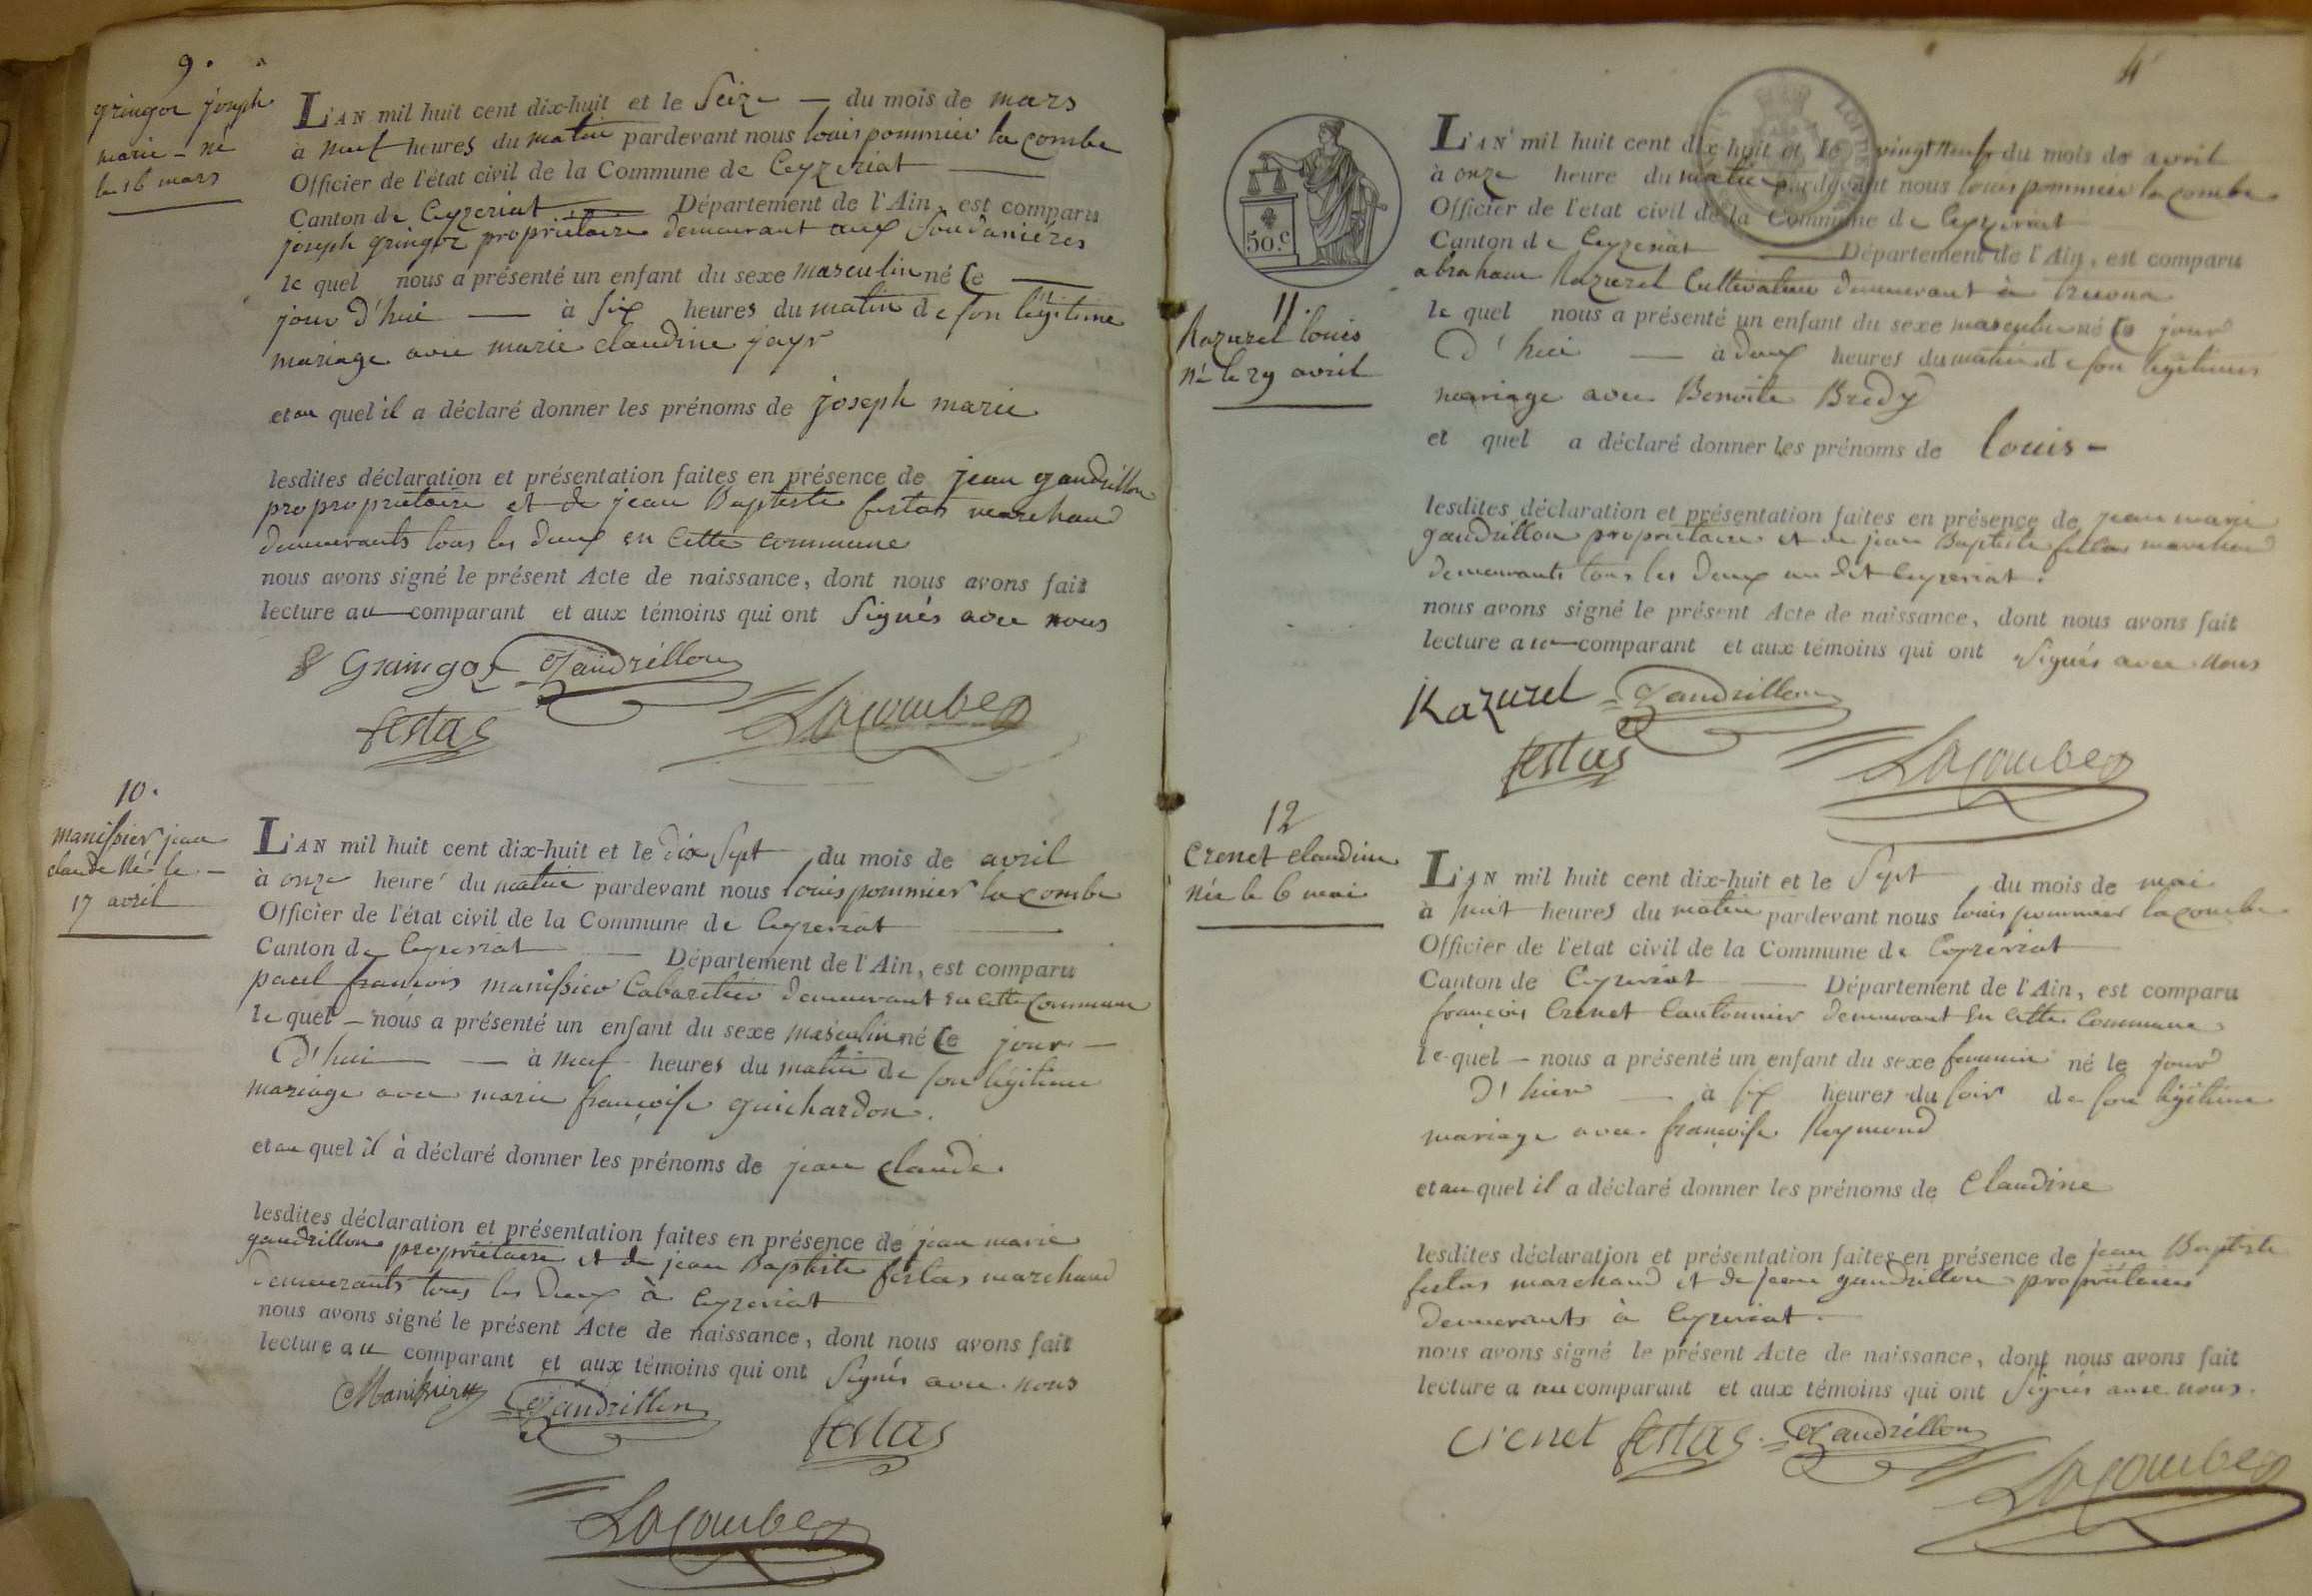 9.
gringoz joseph
marie - né
le 16 mars
L'AN mil huit cent dix-huit et le Seize — du mois de mars
à neuf heures du matin pardevant nous louis pommier la combe
Officier de l'état civil de la Commune de Ceyzeriat —
Canton de Ceyzeriat — Département de l'Ain, est comparu
joseph gringoz propriétaire demeurant aux Soudanières
le quel nous a présenté un enfant du sexe masculin né Ce —
jour d'hui — à six heures du matin de son légitime
mariage avec marie claudine jayr
et au quel il a déclaré donner les prénoms de joseph marie
lesdites déclaration et présentation faites en présence de jean gaudrillon
propropriétaire et de jean Baptiste festas marchand
demeurants tous les deux en Cette commune
nous avons signé le présent Acte de naissance, dont nous avons fait
lecture au comparant et aux témoins qui ont Signés avec nous
Graingoz Gaudrillon
festas Lacombe
10.
manissier jean
claude né le -
17 avril
L'AN mil huit cent dix-huit et le dix Sept du mois de avril
à onze heure du matin pardevant nous louis pommier la combe
Officier de l'état civil de la Commune de Ceyzeriat —
Canton de Ceyzeriat — Département de l'Ain, est comparu
paul françois manissier Cabaretier demeurant en cette Commune
le quel - nous a présenté un enfant du sexe masculin né Ce jour -
D'hui — à neuf heures du matin de son légitime
mariage avec marie françoise guichardon.
et au quel il à déclaré donner les prénoms de jean claude.
lesdites déclaration et présentation faites en présence de jean marie
gaudrillon propriétaire et de jean Baptiste festas marchand
demeurants tous les deux à Ceyzeriat
nous avons signé le présent Acte de naissance, dont nous avons fait
lecture au comparant et aux témoins qui ont Signés avec nous
Manissier Gaudrillon
festas
Lacombe
4
50.c
11.
Razurel louis
né le 29 avril
L'AN mil huit cent dix-huit et le vingt neuf du mois de avril
à onze heure du matin pardevant nous louis pommier la combe
Officier de l'état civil de la Commune de Ceyzeriat
Canton de Ceyzeriat — Département de l'Ain, est comparu
abraham Razurel Cultivateur demeurant à
le quel nous a présenté un enfant du sexe masculin né Ce jour
D'hui — à deux heures du matin de son légitime
mariage avec Benoite Bredy
et quel a déclaré donner les prénoms de louis -
lesdites déclaration et présentation faites en présence de jean marie
gaudrillon propriétaire et de jean Baptiste festas marchand
demeurants tous les deux au dit Ceyzeriat.
nous avons signé le présent Acte de naissance, dont nous avons fait
lecture au comparant et aux témoins qui ont Signés avec nous
Razurel Gaudrillon
festas Lacombe
12
Crenet claudine
née le 6 mai
L'AN mil huit cent dix-huit et le Sept du mois de mai
à huit heures du matin pardevant nous louis pommier lacombe
Officier de l'état civil de la Commune de Ceyzeriat
Canton de Ceyzeriat — Département de l'Ain, est comparu
françois Crenet Cantonnier demeurant en Cette Commune
le quel - nous a présenté un enfant du sexe feminin né le jour
D'hier — à six heures du soir de son légitime
mariage avec françoise Reymond
et au quel il a déclaré donner les prénoms de Claudine
lesdites déclaration et présentation faites en présence de jean Baptiste
festas marchand et de jean gaudrillon propriétaires
demeurants à Ceyzeriat.
nous avons signé le présent Acte de naissance, dont nous avons fait
lecture a au comparant et aux témoins qui ont Signés avec nous.
Crenet festas Gaudrillon
Lacombe